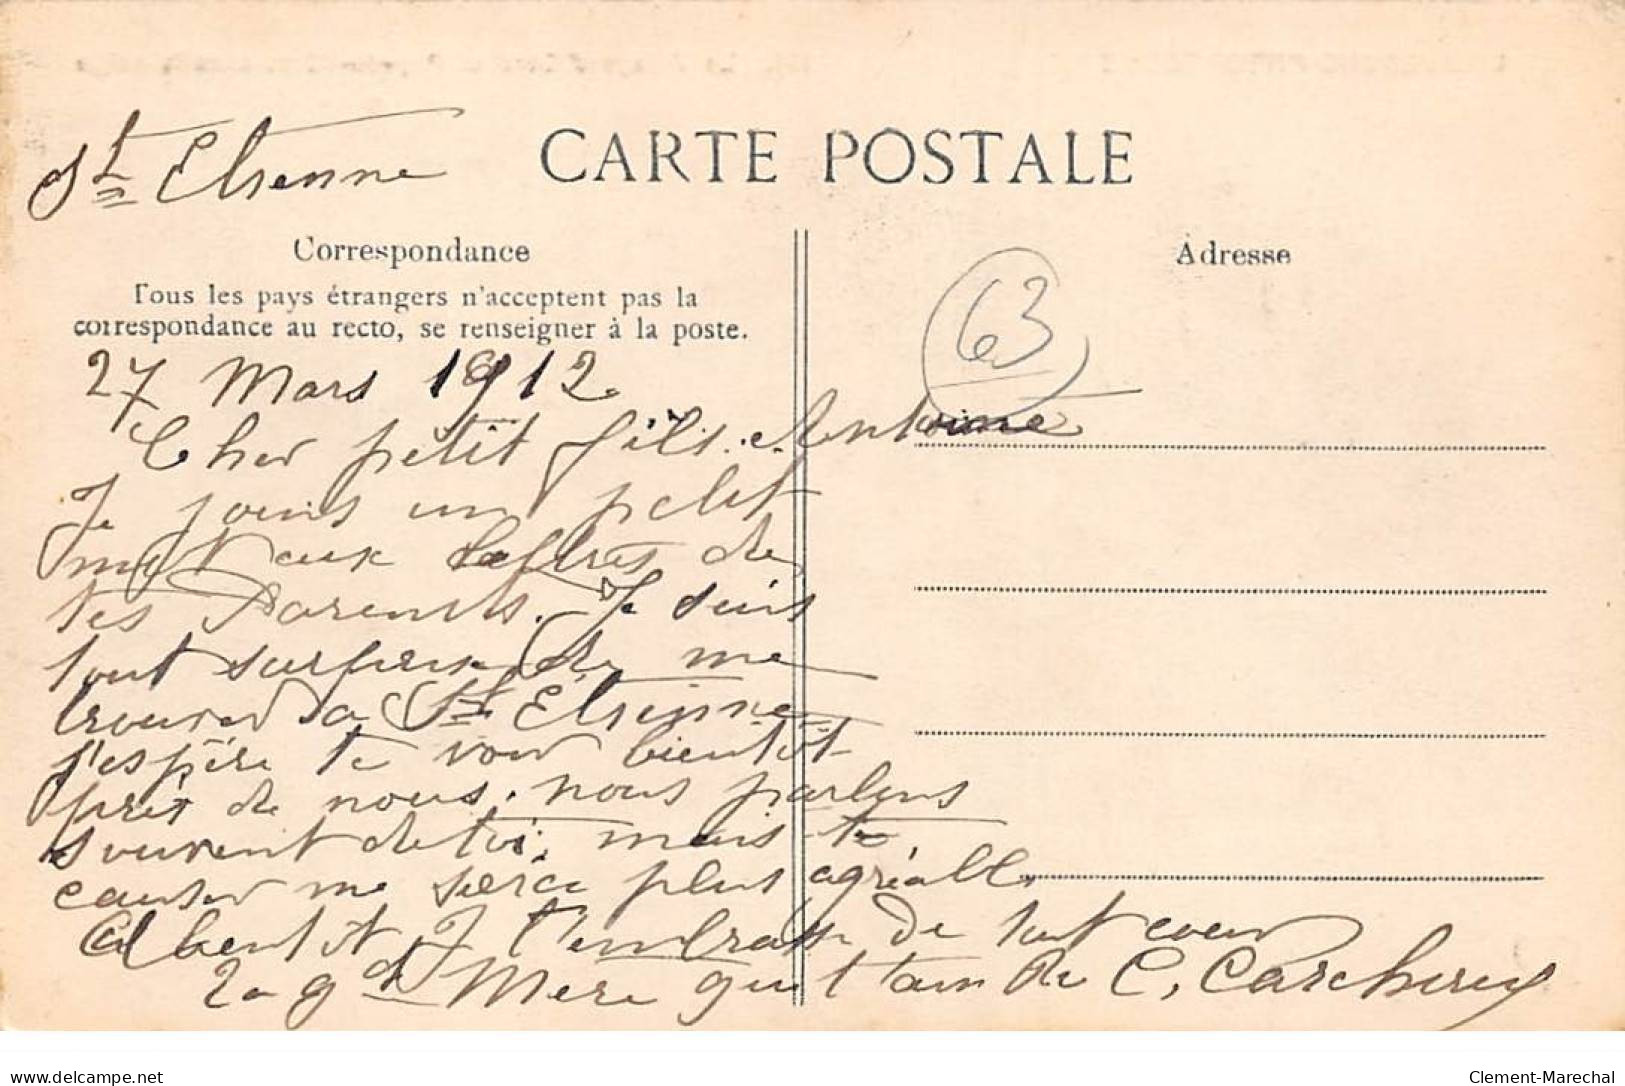 CARTE POSTALE
St Etienne
Correspondance
Tous les pays étrangers n'acceptent pas la
correspondance au recto, se renseigner à la poste.
27 Mars 1912.
Cher petit fils. Antoine
Je joins un petit
mot aux lettres de
tes Parents. Je suis
tout surprise de me
trouver a St Etienne
j'espère te voir bientôt
pret de nous. nous parlons
souvent de toi, mais te
causer me serai plus agréable
Albert et J t'embrasse de tout coeur
Ta gd Mere qui t'aime C, Carcherey
Adresse
63
delcampe.net
Clement-Marechal